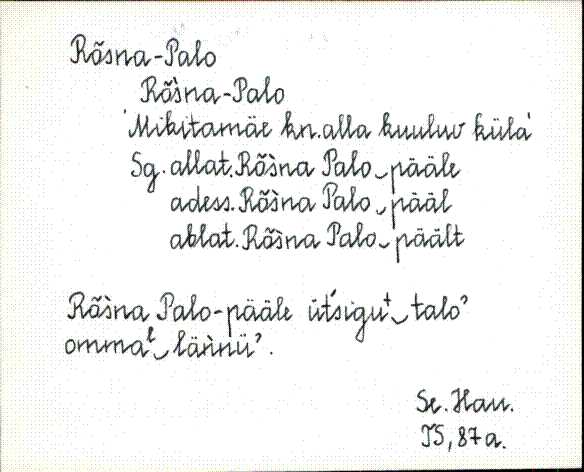 Rõsna-Palo
Rõs̀na-Palo
'Mikitamäe kn. alla kuuluv küla'
Sg. allat. Rõs̀na Palo‿pääle
adess. Rõs̀na Palo‿pääl
ablat. Rõs̀na Palo‿päält
Rõs̀na Palo-pääle üt́siguᵗ‿talo’
ommaᶩ‿läǹnü’.
Se. Hau.
TS, 87a.